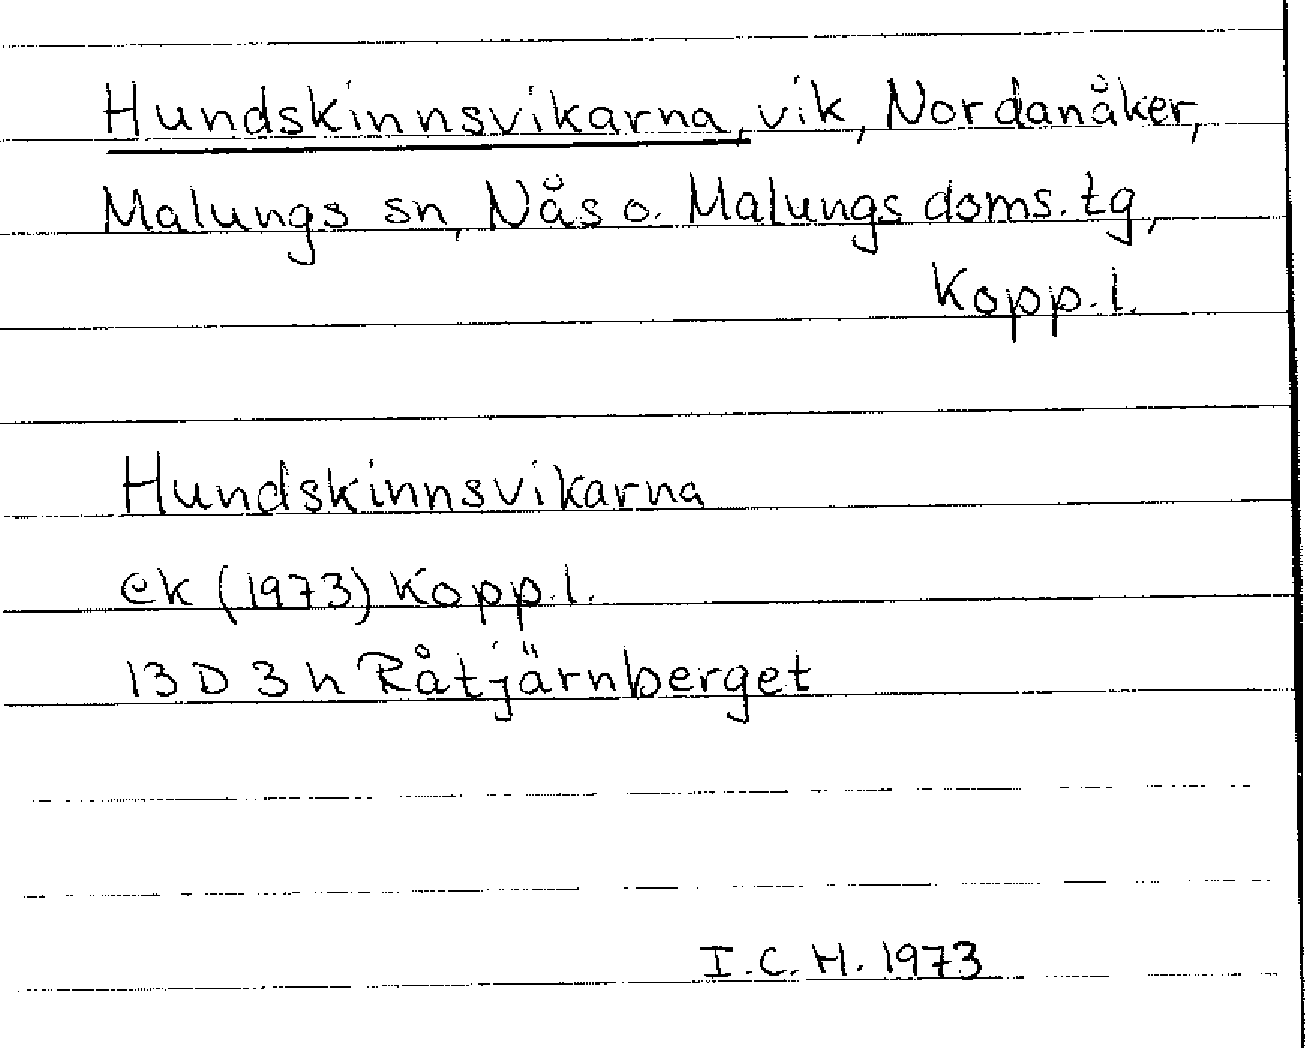 Hundskinnsvikarna, vik, Nordanåker,
Malungs sn, Nås o. Malungs doms. tg,
Kopp. l.
Hundskinnsvikarna
ek (1973) Kopp. l.
13 D 3 h Råtjärnberget
I. C. H. 1973